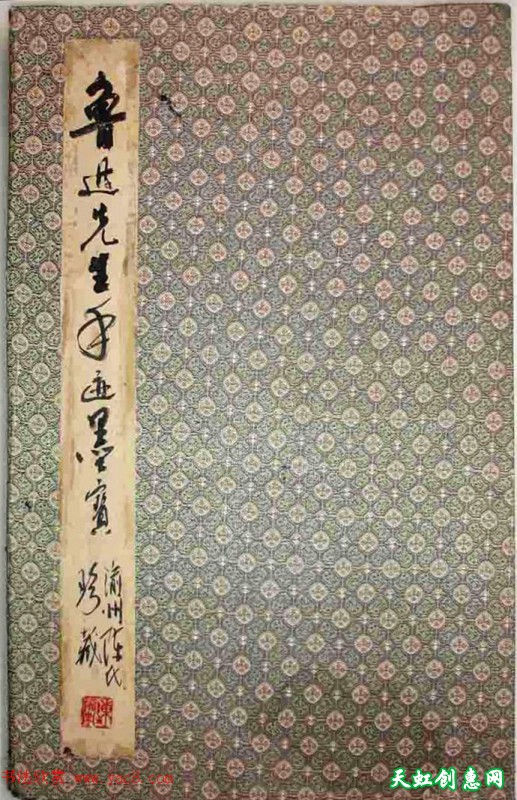 鲁迅先生手迹墨宝
渝州陈氏
珍藏
天虹创意网